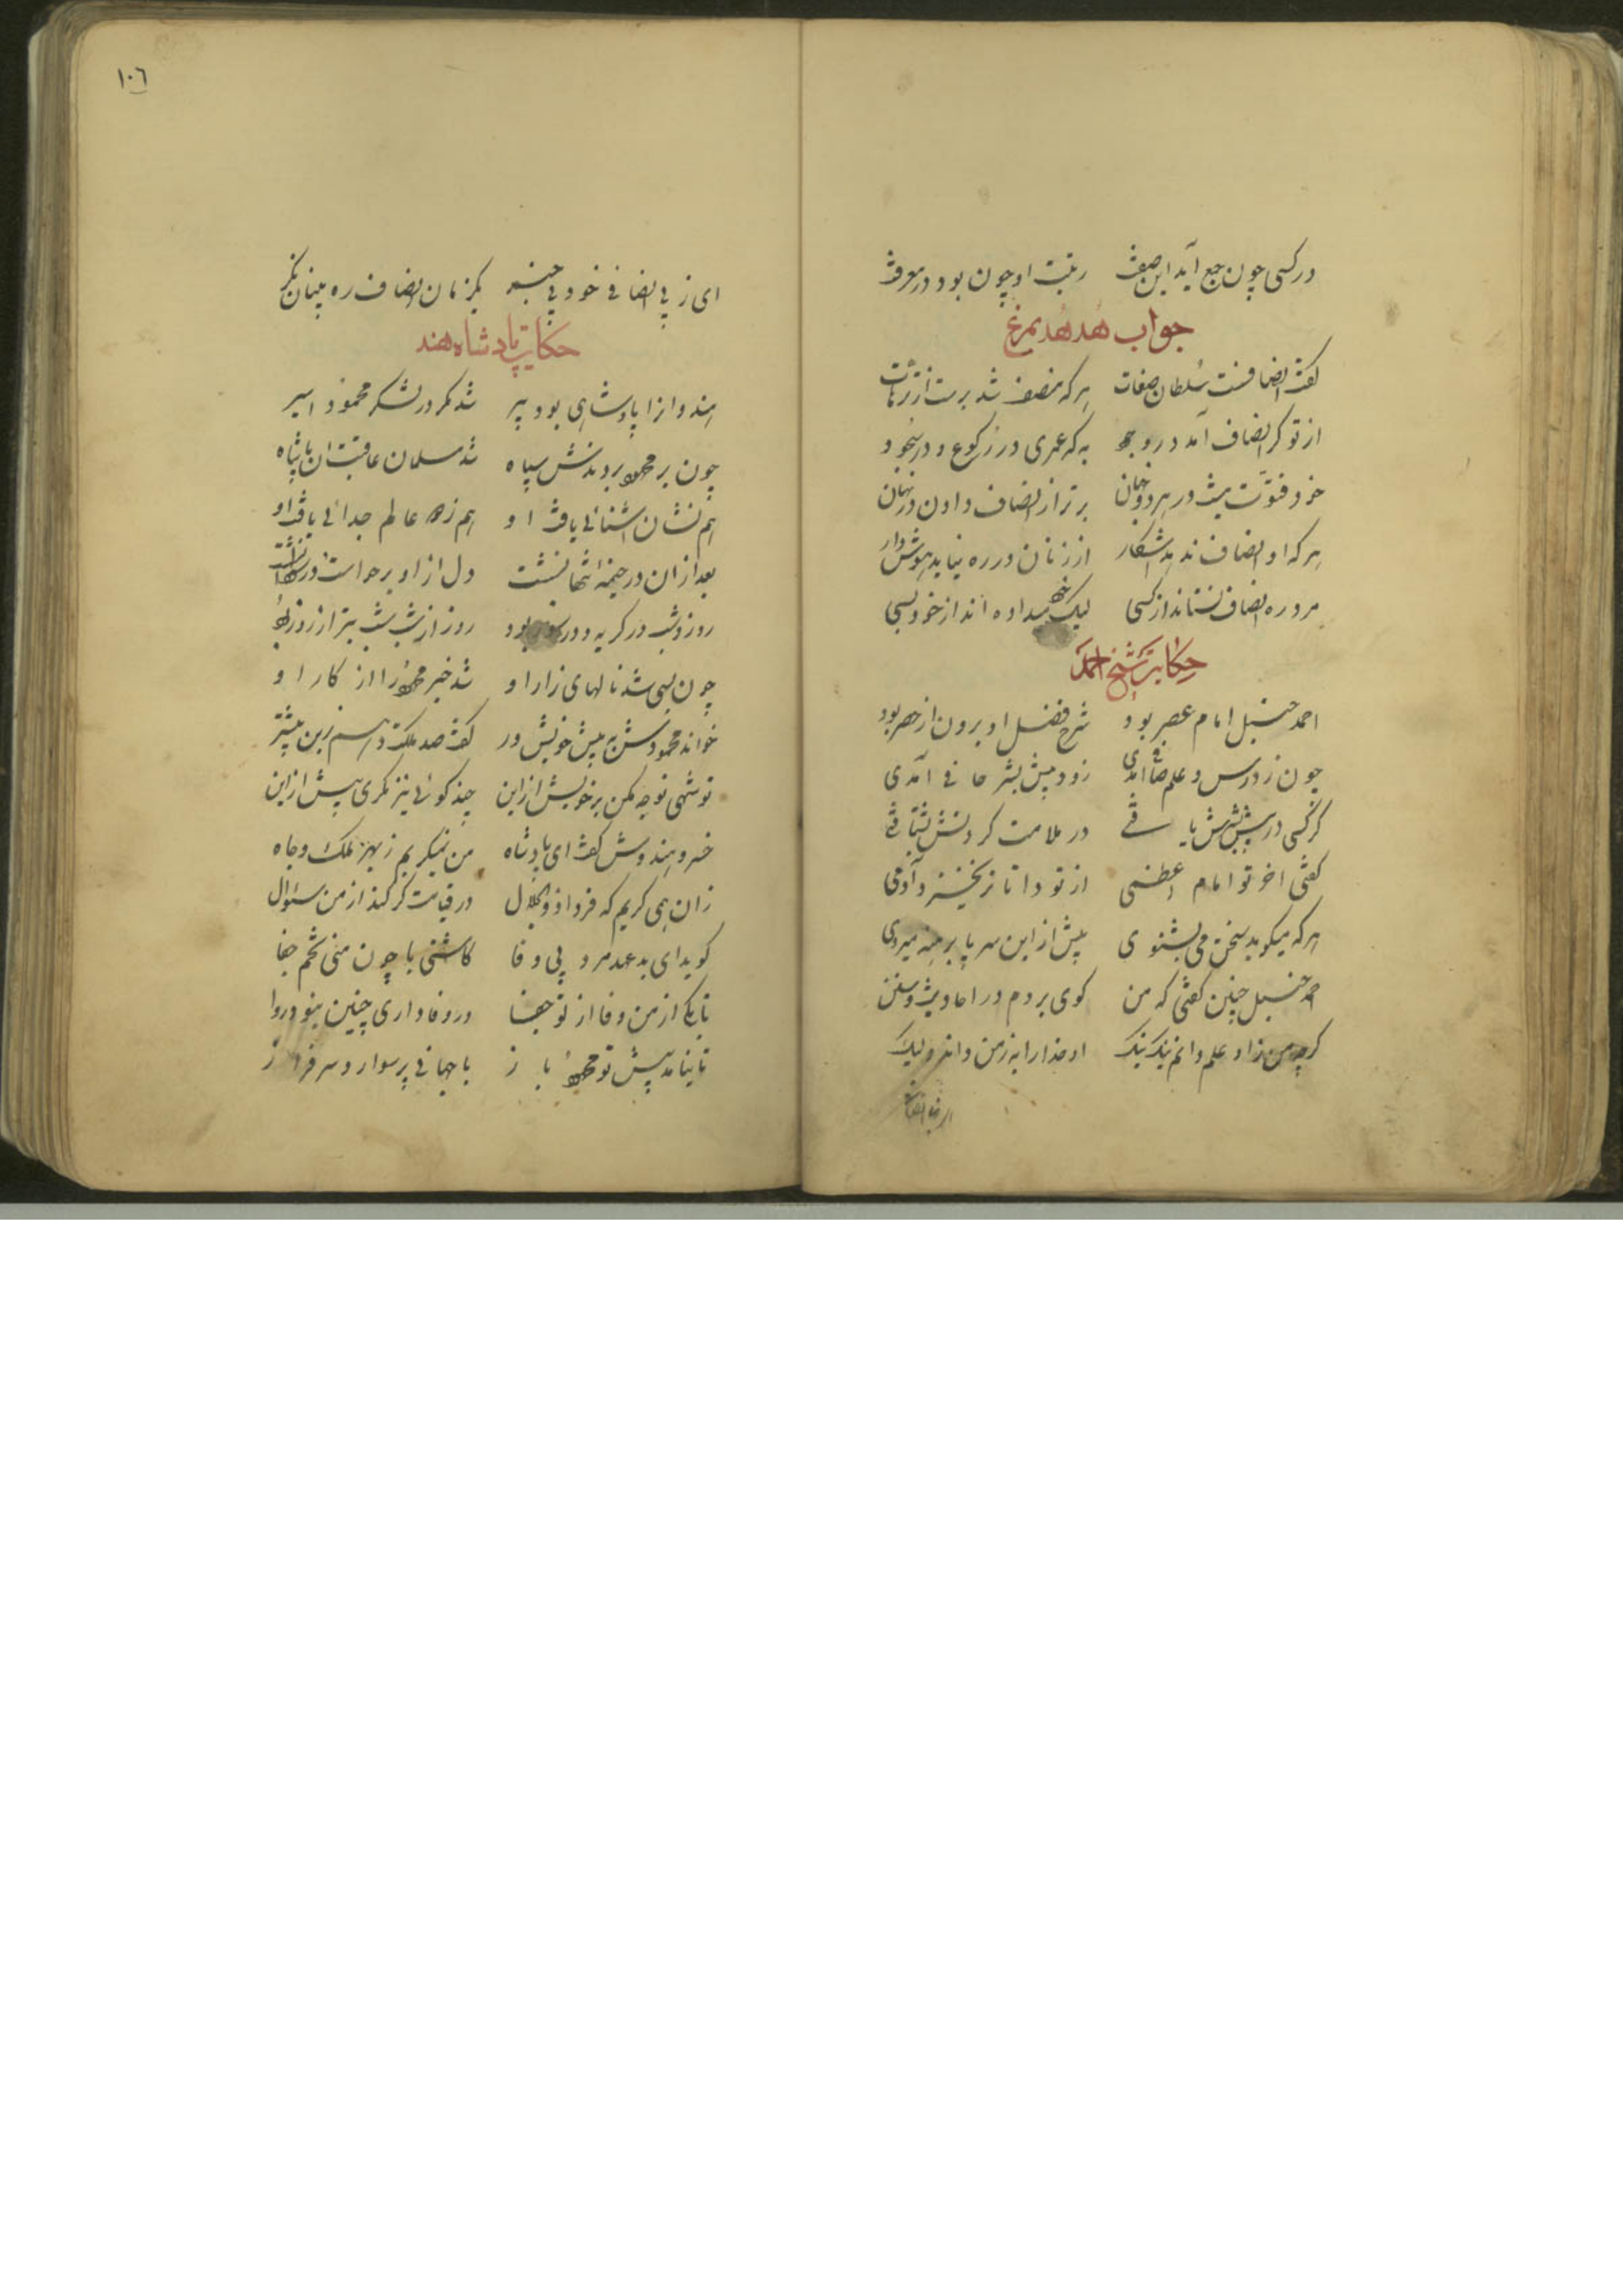 در کسی چون جمع آید این صفت رتبت او چون بود در معرفت
جواب هدهد بمرغ
گفت انصافست سلطان صفات هر که منصف شد برست از ترهات
از تو گر انصاف آمد در وجود به که عمری در رکوع و در سجود
خود فتوت نیست در هر دو جهان برتر از انصاف دادن در نهان
هر که او انصاف ندهد آشکار از زنان در ره نیاید هوش دار
مرد ره انصاف نستاند از کسی لیک خود میداده اند از خود بسی
حکایت شیخ احمد
احمد حنبل امام عصر بود شرح فضل او برون از حصر بود
چون ز درس و علم صافی آمدی زود پیش بشر حافی آمدی
گر کسی در پیش بشرش یافتی در ملامت کردنش بشتافتی
گفتی آخر تو امام اعظمی از تو داناتر نخیزد آدمی
هر که میگوید سخن می نشنوی پیش از این سر پا برهنه میروی
احمد حنبل چنین گفتی که من گوی بردم در احادیث و سنن
گرچه من زاو علم دانم نیک نیک او خدا را به ز من داند ولیک
ای ز بی انصافی خود بی خبر یکزمان انصاف ره بینان نگر
١٠٦
حکایت پادشاه هند
هندوانرا پادشاهی بود پیر شد مگر در لشکر محمود اسیر
چون بر محمود بردندش سپاه شد مسلمان عاقبت آن پادشاه
هم نشان آشنائی یافت او هم ز دو عالم جدائی یافت او
بعد از آن در خیمهٔ تنها نشست دل از او برخواست در سودا نشست
روز و شب در گریه و در سوز بود روز از شب شب بتر از روز بود
چون بسی شد نالهای زار او شد خبر محمود را از کار او
خواند محمودش به پیش خویش در گفت صد ملکت دهم زین بیشتر
تو شهی نوحه مکن بر خویش از این چند گوئی نیز مگری بیش از این
خسرو هندوش گفت ای پادشاه من نمیگریم ز بهر ملک و جاه
زان همی گریم که فردا ذو الجلال در قیامت گر کند از من سئوال
گوید ای بد عهد مرد بی وفا کاشتی با چون منی تخم جفا
تا یکی از من وفا از تو جفا در وفاداری چنین نبود روا
تا نیامد پیش تو محمود باز با جهانی پر سوار و سرفراز